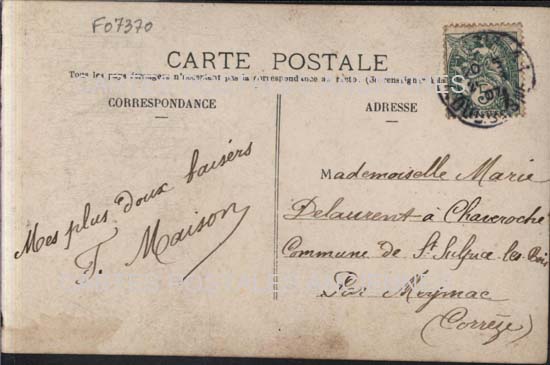 F07370
CARTE POSTALE
Tous les pays étrangers n'acceptent pas la correspondance au recto. (Se renseigner à la
CORRESPONDANCE
ADRESSE
Mes plus doux baisers
F. Maison
Mademoiselle Marie
Delaurent à Chaveroche
Commune de St Sulpice les Bois
Par Meymac
(Corrèze)